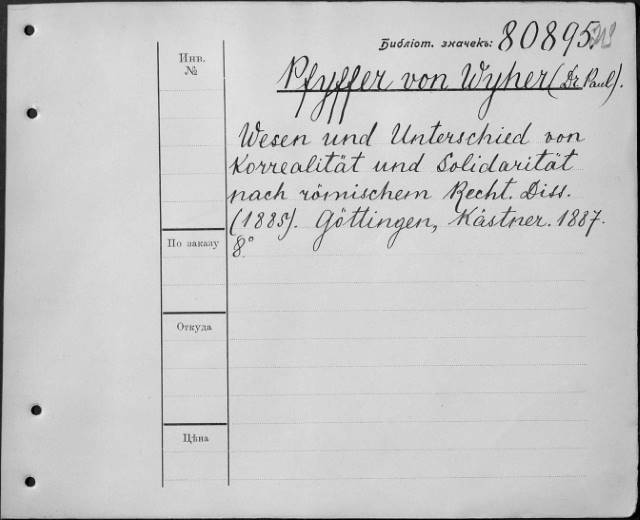 Библіот. значекъ: 80895
Инв.
№
Pfyffer von Wyher (Dr Paul).
Wesen und Unterschied von
Korrealität und Solidarität
nach römischem Recht. Diss.
(1885). Göttingen, Kästner. 1887.
8°
По заказу
Откуда
Цѣна